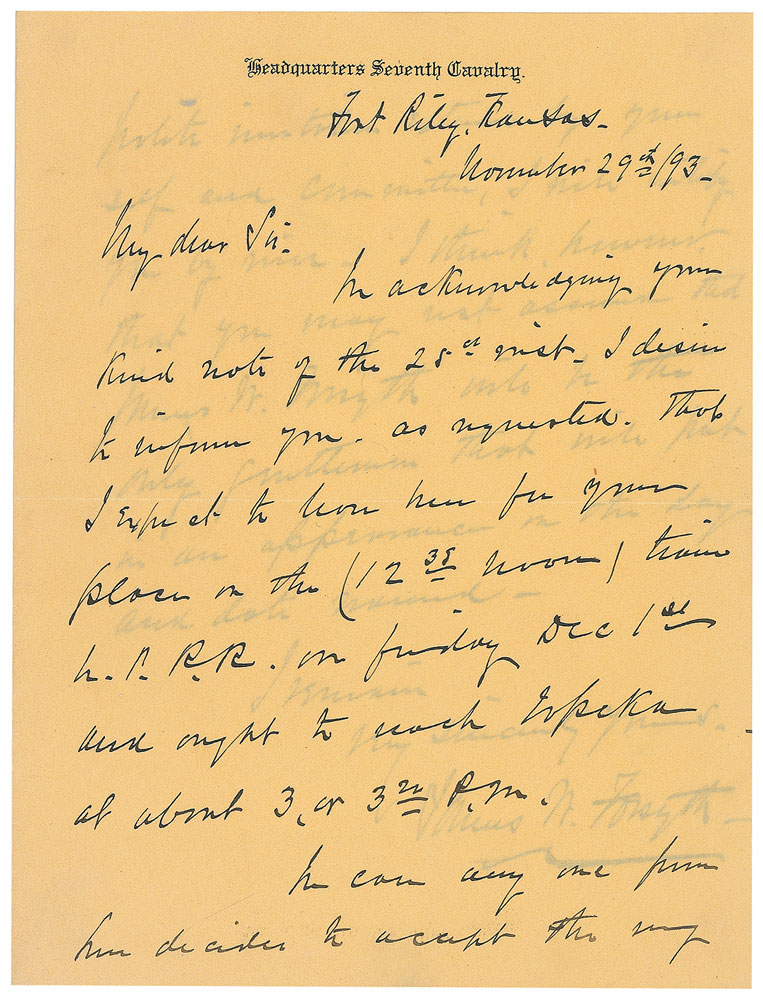 Headquarters Seventh Cavalry.
Fort Riley, Kansas_
November 29th/93_
My dear Sir_
In acknowledging your
kind note of the 28th inst_ I desire
to inform you. as requested. that
I expect to leave here for your
place on the (12 noon) train
U. P. R.R. on friday Dec 1st
and ought to reach Topeka
at about 3, or 3 P.m.
In case any one from
here decides to accept the very